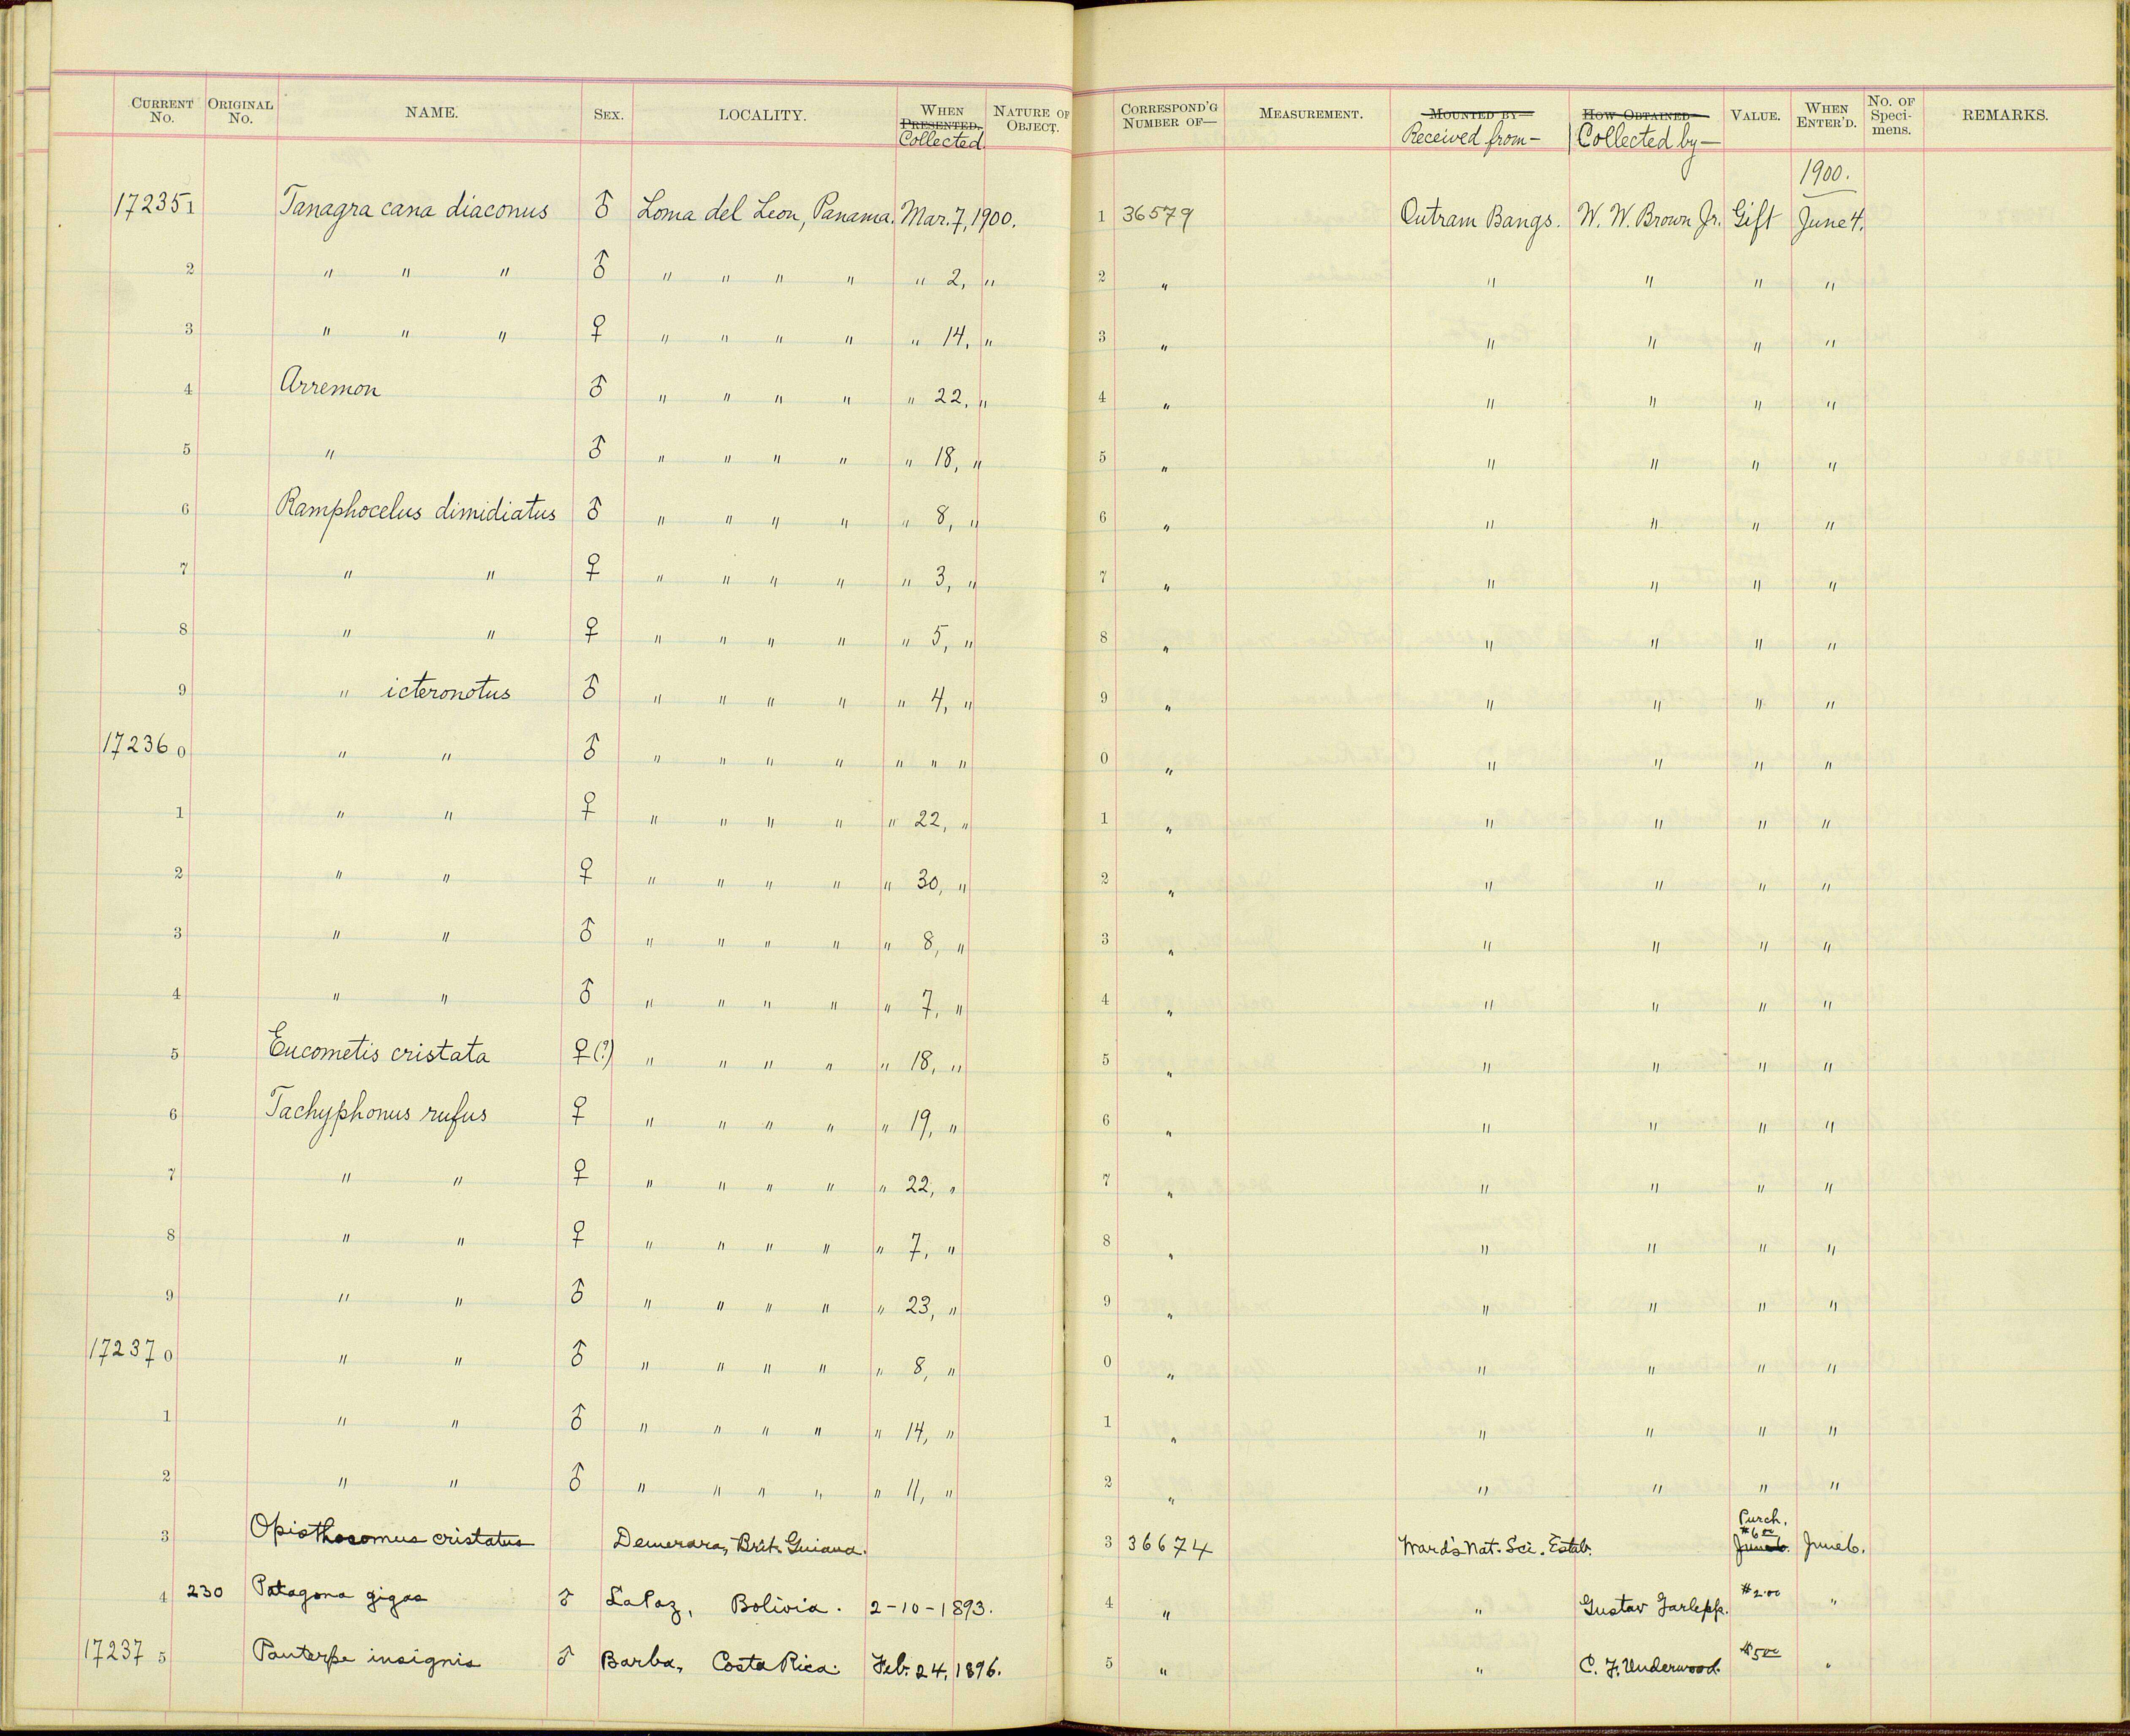 CURRENT No. ORIGINAL No. NAME. SEX. LOCALITY. WHEN PRESENTED. Collected. NATURE OF OBJECT. CORRESPOND'G NUMBER OF— MEASUREMENT. MOUNTED BY— Received from— HOW OBTAINED— Collected by— VALUE. WHEN ENTER'D. No. OF Speci-mens. REMARKS.
1900.
17235 1 Tanagra cana diaconus ♂ Loma del Leon, Panama. Mar. 7, 1900. 1 36579 Outram Bangs. W. W. Brown Jr. Gift June 4.
2 " " " ♂ " " " " " 2, " 2 " " " " "
3 " " " ♀ " " " " " 14, " 3 " " " " "
4 Arremon ♂ " " " " " 22, " 4 " " " " "
5 " ♂ " " " " " 18, " 5 " " " " "
6 Ramphocelus dimidiatus ♂ " " " " " 8, " 6 " " " " "
7 " " ♀ " " " " " 3, " 7 " " " " "
8 " " ♀ " " " " " 5, " 8 " " " " "
9 " icteronotus ♂ " " " " " 4, " 9 " " " " "
17236 0 " " ♂ " " " " " " " 0 " " " " "
1 " " ♀ " " " " " 22, " 1 " " " " "
2 " " ♀ " " " " " 30, " 2 " " " " "
3 " " ♂ " " " " " 8, " 3 " " " " "
4 " " ♂ " " " " " 7, " 4 " " " " "
5 Eucometis cristata ♀(?) " " " " " 18, " 5 " " " " "
6 Tachyphonus rufus ♀ " " " " " 19, " 6 " " " " "
7 " " ♀ " " " " " 22, " 7 " " " " "
8 " " ♀ " " " " " 7, " 8 " " " " "
9 " " ♂ " " " " " 23, " 9 " " " " "
17237 0 " " ♂ " " " " " 8, " 0 " " " " "
1 " " ♂ " " " " " 14, " 1 " " " " "
2 " " ♂ " " " " " 11, " 2 " " " " "
3 Opisthocomus cristatus Demerara, Brit. Guiana. 3 36674 Ward's Nat. Sci. Estab. Purch. $6.00 June 6. June 6.
4 230 Patagona gigas ♂ La Paz, Bolivia. 2-10-1893. 4 " " Gustav Garlepp. $2.00 "
17237 5 Panterpe insignis ♂ Barba, Costa Rica. Feb. 24, 1896. 5 " " C. F. Underwood. $5.00 "